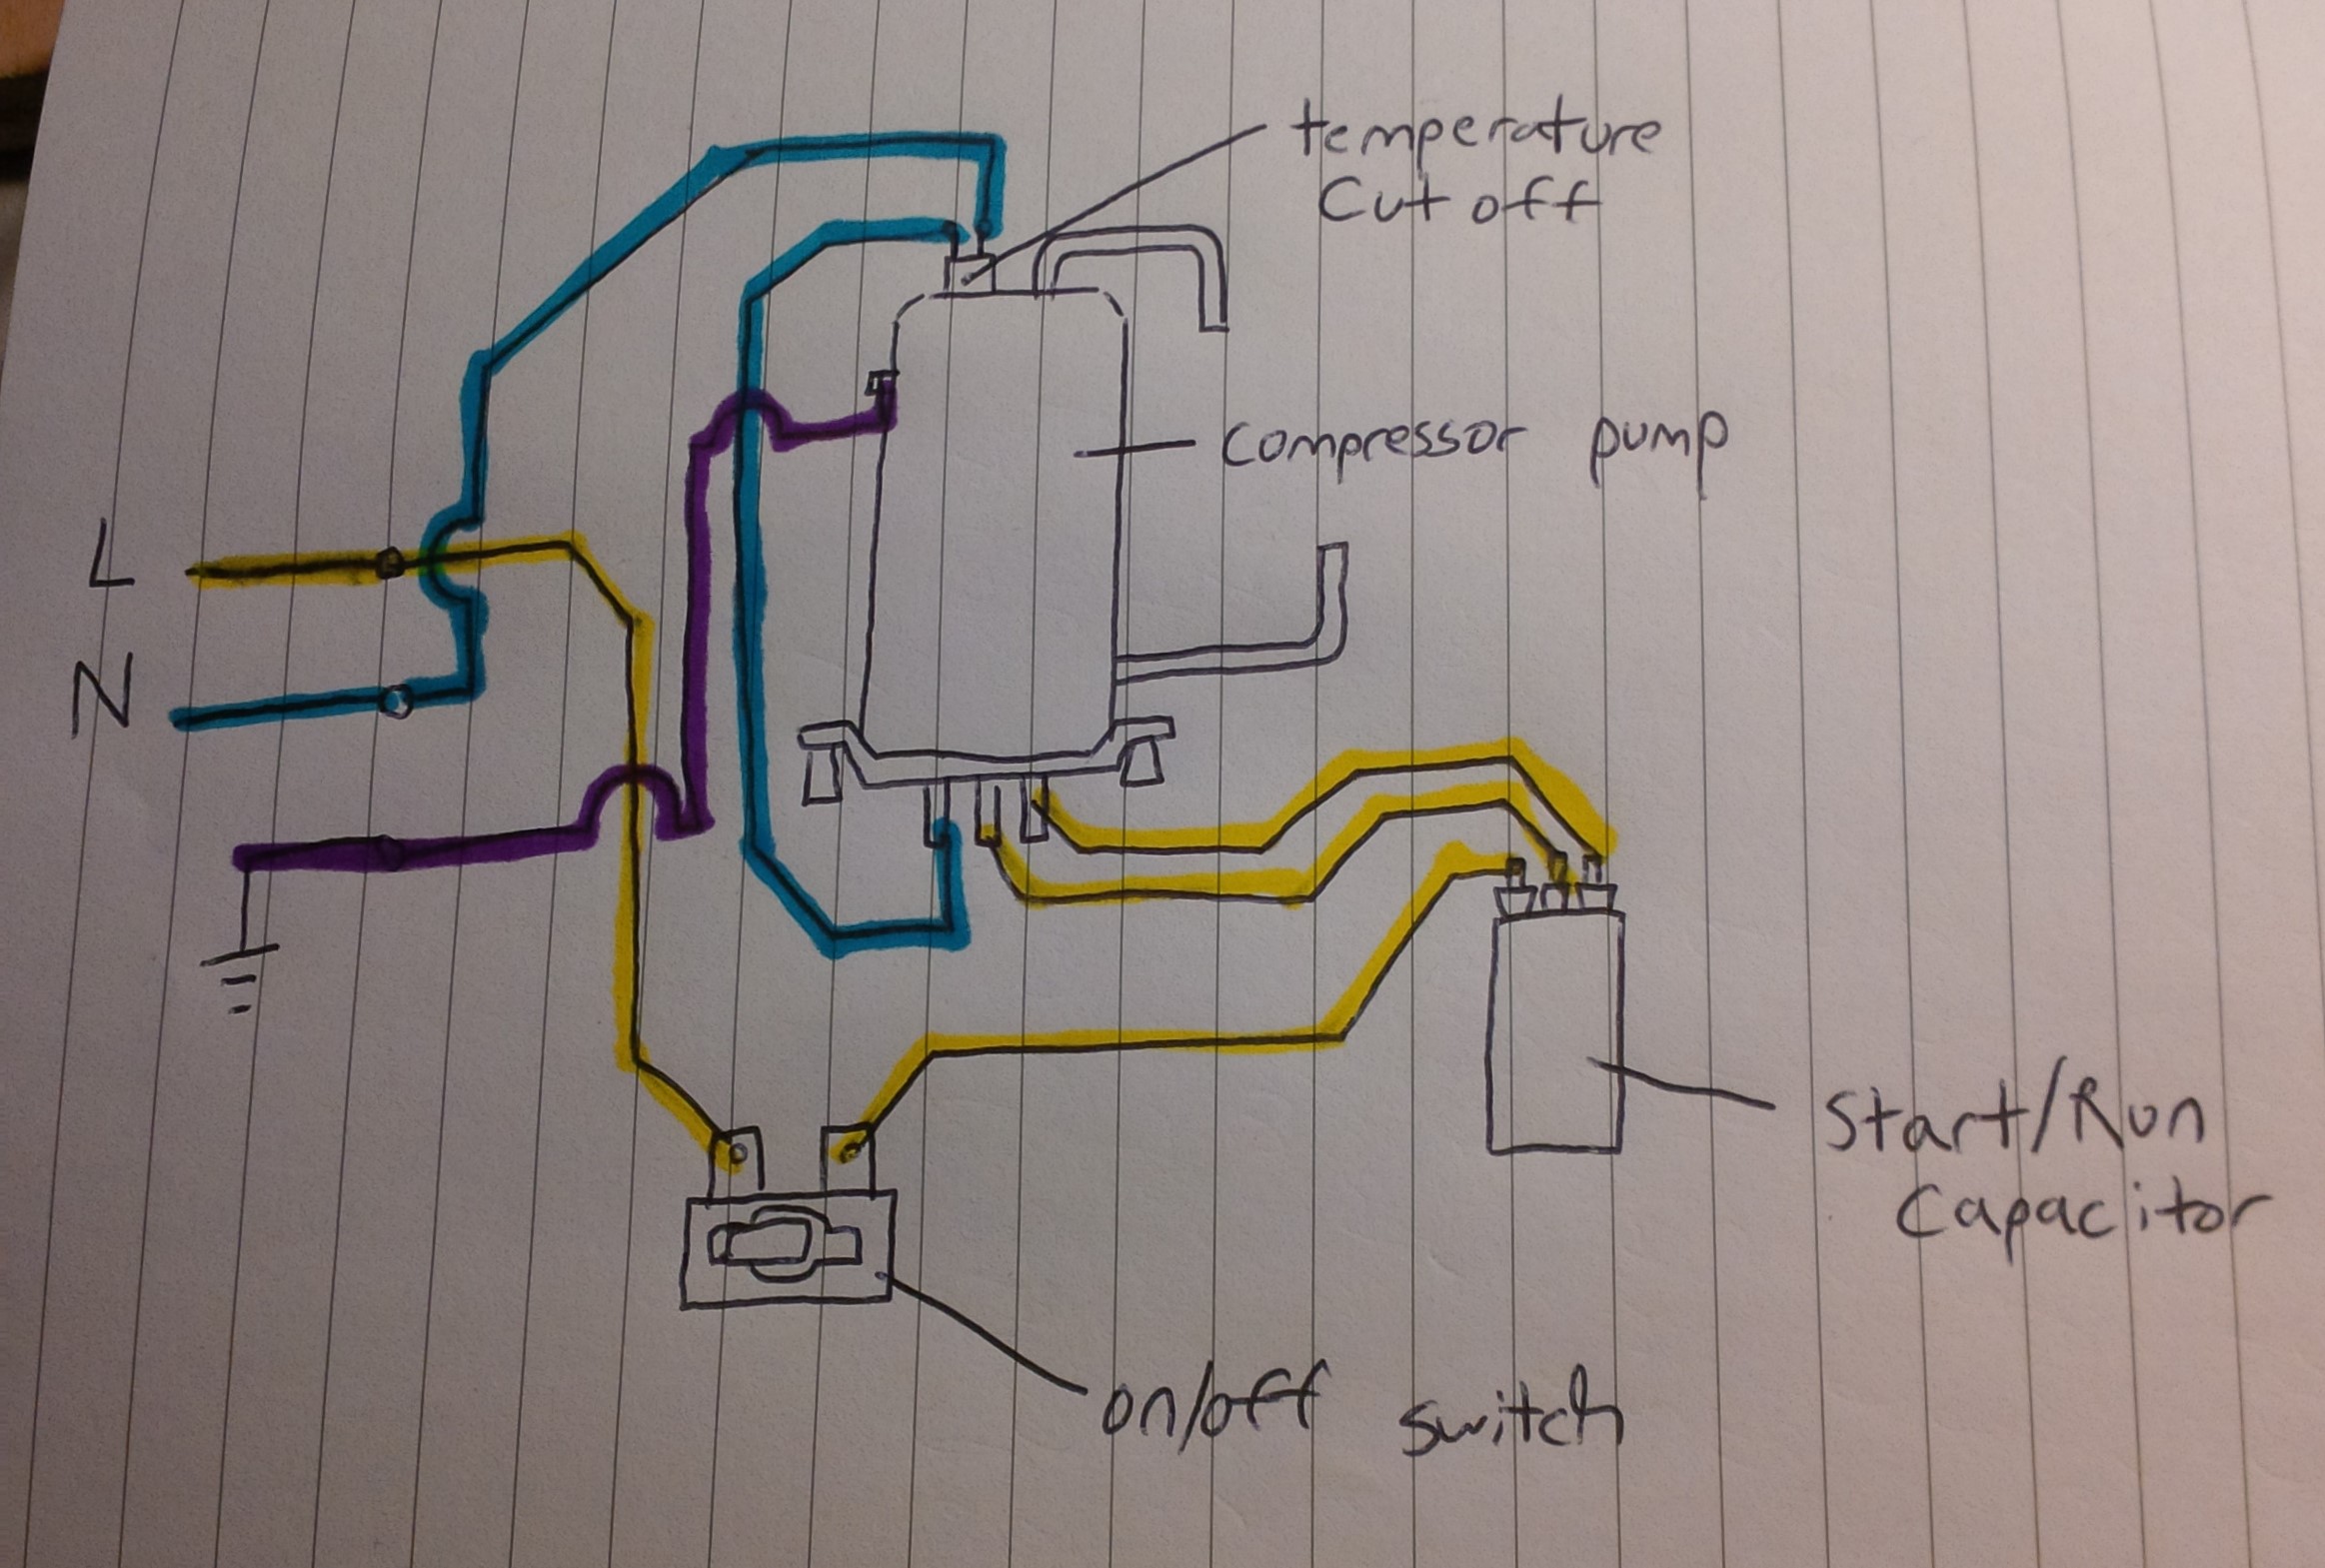 temperature
Cut off
compressor pump
L
N
Start/Run
Capacitor
on/off switch